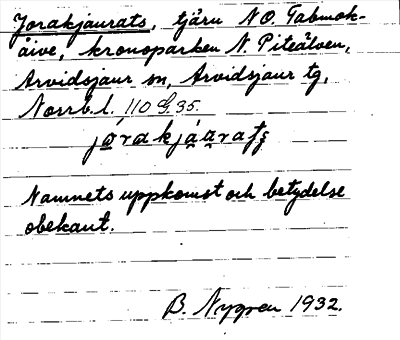 Jorakjaurats, tjärn NO. Tabmok-
åive, kronoparken N. Piteälven,
Arvidsjaur sn, Arvidsjaur tg,
Norrb. l. 110 G. 35.
Namnets uppkomst och betydelse
obekant.
B. Nygren 1932.